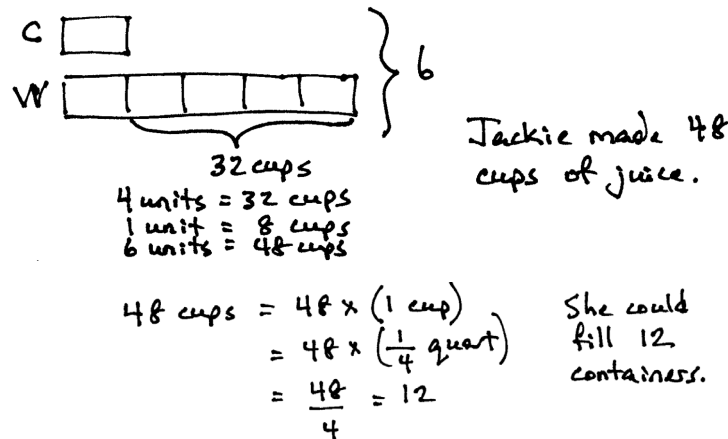 C
W
6
32 cups
4 units = 32 cups
1 unit = 8 cups
6 units = 48 cups
Jackie made 48
cups of juice.
48 cups = 48 × (1 cup)
= 48 × (1/4 quart)
= 48/4 = 12
She could
fill 12
containess.